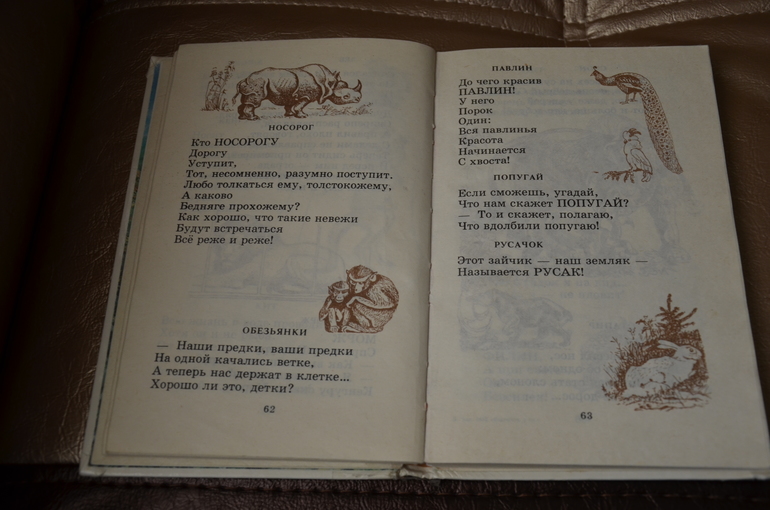 НОСОРОГ
Кто НОСОРОГУ
Дорогу
Уступит,
Тот, несомненно, разумно поступит.
Любо толкаться ему, толстокожему,
А каково
Бедняге прохожему?
Как хорошо, что такие невежи
Будут встречаться
Всё реже и реже!
ОБЕЗЬЯНКИ
— Наши предки, ваши предки
На одной качались ветке,
А теперь нас держат в клетке...
Хорошо ли это, детки?
62
ПАВЛИН
До чего красив
ПАВЛИН!
У него
Порок
Один:
Вся павлинья
Красота
Начинается
С хвоста!
ПОПУГАЙ
Если сможешь, угадай,
Что нам скажет ПОПУГАЙ?
— То и скажет, полагаю,
Что вдолбили попугаю!
РУСАЧОК
Этот зайчик — наш земляк —
Называется РУСАК!
63